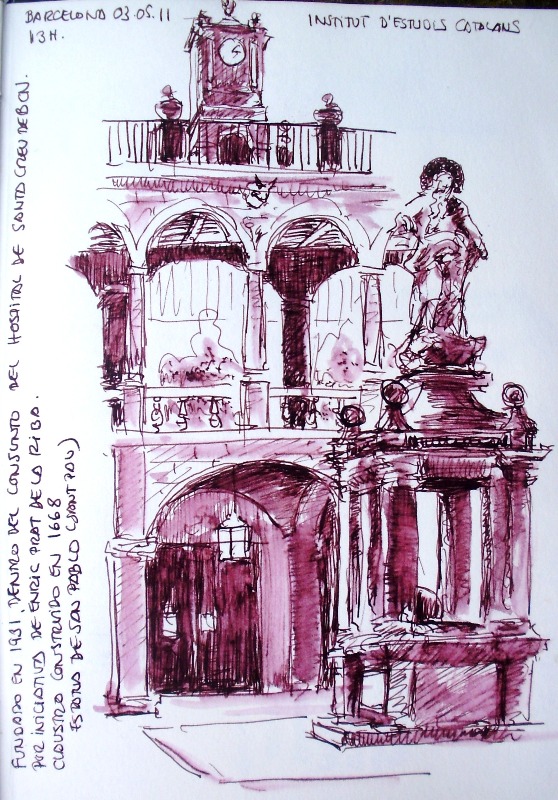 BARCELONA 03.05.11
13H.
INSTITUT D'ESTUDIS CATALANS
FUNDADO EN 1931, DENTRO DEL CONJUNTO DEL HOSPITAL DE SANTA CREU DE BCN.
POR INICIATIVA DE ENRIC PRAT DE LA RIBA.
CLAUSTRO CONSTRUIDO EN 1668
ESTATUA DE SAN PABLO (SANT PAU)